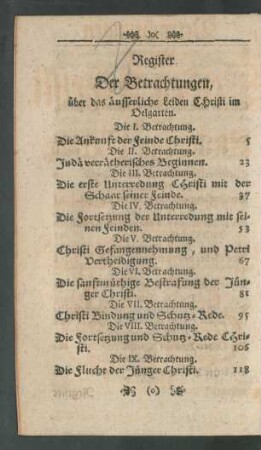 Register
Der Betrachtungen,
über das äusserliche Leiden Christi im
Oelgarten.
Die I. Betrachtung.
Die Ankunft der Feinde Christi. 5
Die II. Betrachtung.
Judä verrätherisches Beginnen. 23
Die III. Betrachtung.
Die erste Unterredung Christi mit der
Schaar seiner Feinde. 37
Die IV. Betrachtung.
Die Fortsetzung der Unterredung mit sei-
nen Feinden. 53
Die V. Betrachtung.
Christi Gefangennehmung, und Petri
Vertheidigung. 67
Die VI. Betrachtung.
Die sanftmüthige Bestrafung der Jün-
ger Christi. 81
Die VII. Betrachtung.
Christi Bindung und Schutz-Rede. 95
Die VIII. Betrachtung.
Die Fortsetzung und Schutz-Rede Chri-
sti. 106
Die IX. Betrachtung.
Die Fluche der Jünger Christi. 118
(o)